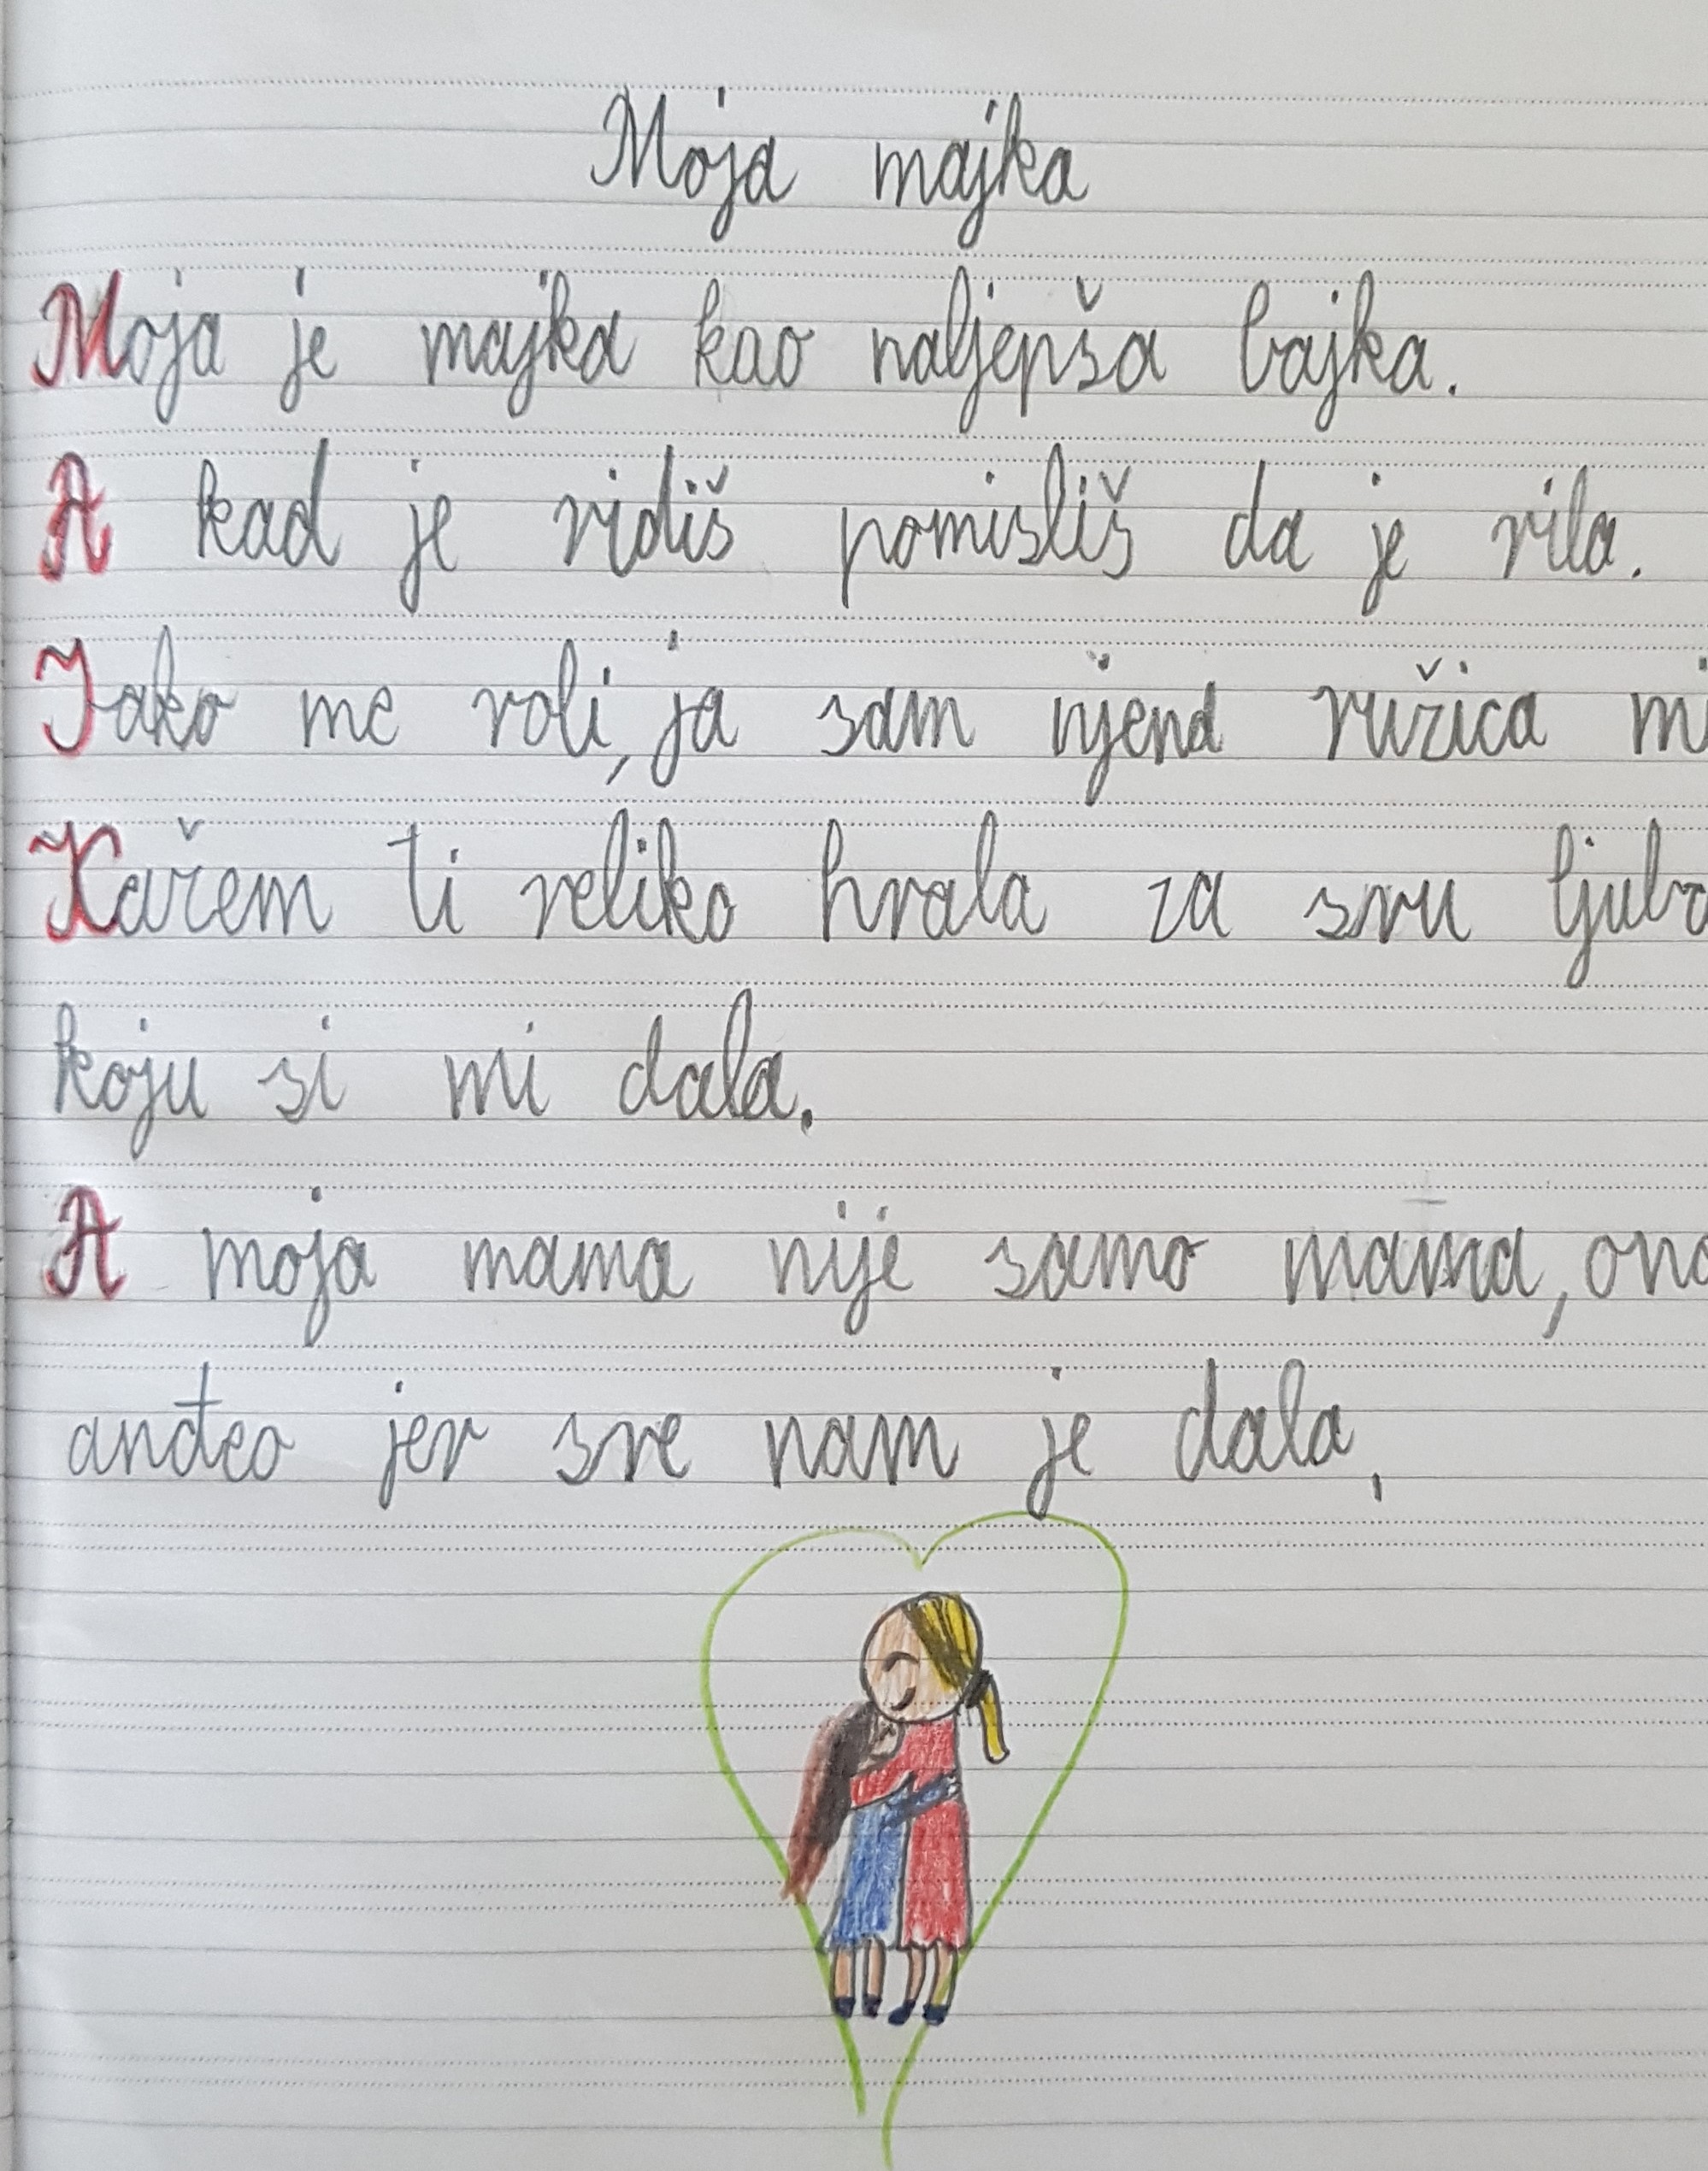 Moja majka
Moja je majka kao naljepša bajka.
A kad je vidiš pomisliš da je vila.
Jako me voli, ja sam njena ružica mi
Kažem ti veliko hvala za svu ljubo
koju si mi dala.
A moja mama nije samo mama, ona
anđeo jer sve nam je dala.